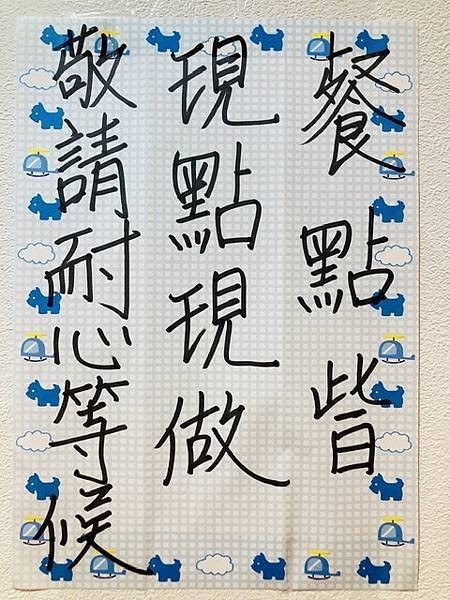 餐點皆
現點現做
敬請耐心等候